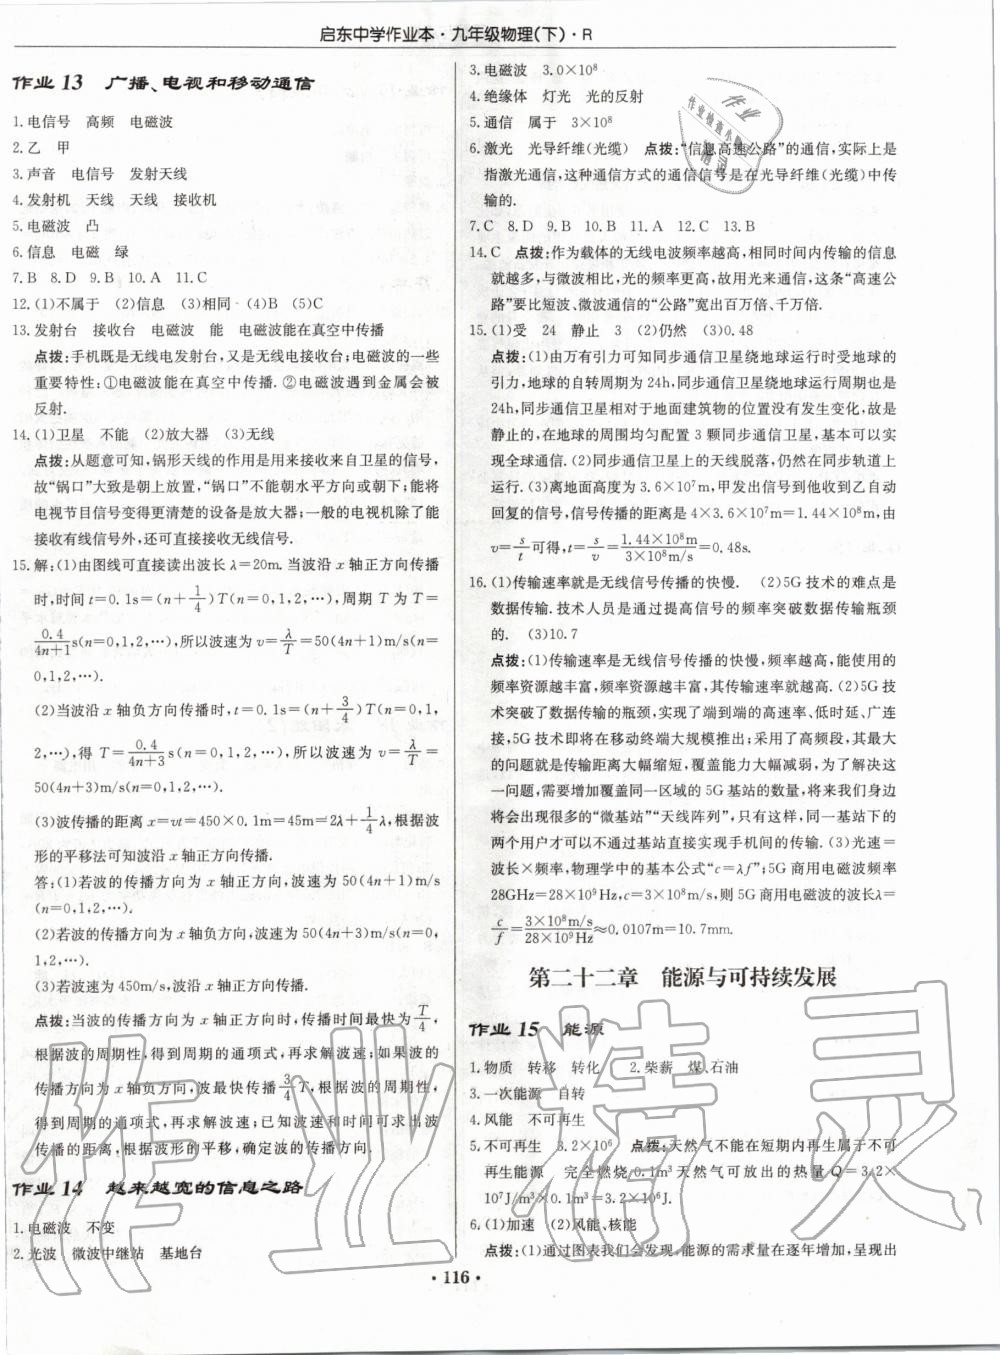 启东中学作业本·九年级物理(下)·R
作业 13 广播、电视和移动通信
1.电信号 高频 电磁波
2.乙 甲
3.声音 电信号 发射天线
4.发射机 天线 天线 接收机
5.电磁波 凸
6.信息 电磁 绿
7.B 8.D 9.B 10.A 11.C
12.(1)不属于 (2)信息 (3)相同 (4)B (5)C
13.发射台 接收台 电磁波 能 电磁波能在真空中传播
点拨:手机既是无线电发射台,又是无线电接收台;电磁波的一些
重要特性:①电磁波能在真空中传播.②电磁波遇到金属会被
反射.
14.(1)卫星 不能 (2)放大器 (3)无线
点拨:从题意可知,锅形天线的作用是用来接收来自卫星的信号,
故“锅口”大致是朝上放置,“锅口”不能朝水平方向或朝下;能将
电视节目信号变得更清楚的设备是放大器;一般的电视机除了能
接收有线信号外,还可直接接收无线信号.
15.解:(1)由图线可直接读出波长λ=20m.当波沿x轴正方向传播
时,时间t=0.1s=(n+1/4)T(n=0,1,2,…),周期T为T=
0.4/(4n+1)s(n=0,1,2,…),所以波速为v=λ/T=50(4n+1)m/s(n=
0,1,2,…).
(2)当波沿x轴负方向传播时,t=0.1s=(n+3/4)T(n=0,1,
2,…),得T=0.4/(4n+3)s(n=0,1,2,…),所以波速为v=λ/T=
50(4n+3)m/s(n=0,1,2,…).
(3)波传播的距离x=vt=450×0.1m=45m=2λ+1/4λ,根据波
形的平移法可知波沿x轴正方向传播.
答:(1)若波的传播方向为x轴正方向,波速为50(4n+1)m/s
(n=0,1,2,…).
(2)若波的传播方向为x轴负方向,波速为50(4n+3)m/s(n=0,1,
2,…).
(3)若波速为450m/s,波沿x轴正方向传播.
点拨:当波的传播方向为x轴正方向时,传播时间最快为T/4,
根据波的周期性,得到周期的通项式,再求解波速;如果波的
传播方向为x轴负方向,波最快传播3/4T,根据波的周期性,
得到周期的通项式,再求解波速;已知波速和时间可求出波
传播的距离,根据波形的平移,确定波的传播方向.
作业 14 越来越宽的信息之路
1.电磁波 不变
2.光波 微波中继站 基地台
3.电磁波 3.0×10⁸
4.绝缘体 灯光 光的反射
5.通信 属于 3×10⁸
6.激光 光导纤维(光缆) 点拨:“信息高速公路”的通信,实际上是
指激光通信,这种通信方式的通信信号是在光导纤维(光缆)中传
输的.
7.C 8.D 9.B 10.B 11.A 12.C 13.B
14.C 点拨:作为载体的无线电波频率越高,相同时间内传输的信息
就越多,与微波相比,光的频率更高,故用光来通信,这条“高速公
路”要比短波、微波通信的“公路”宽出百万倍、千万倍.
15.(1)受 24 静止 3 (2)仍然 (3)0.48
点拨:(1)由万有引力可知同步通信卫星绕地球运行时受地球的
引力,地球的自转周期为24h,同步通信卫星绕地球运行周期也是
24h,同步通信卫星相对于地面建筑物的位置没有发生变化,故是
静止的,在地球的周围均匀配置3颗同步通信卫星,基本可以实
现全球通信.(2)同步通信卫星上的天线脱落,仍然在同步轨道上
运行.(3)离地面高度为3.6×10⁷m,甲发出信号到他收到乙自动
回复的信号,信号传播的距离是4×3.6×10⁷m=1.44×10⁸m,由
v=s/t可得,t=s/v=1.44×10⁸m/3×10⁸m/s=0.48s.
16.(1)传输速率就是无线信号传播的快慢. (2)5G技术的难点是
数据传输.技术人员是通过提高信号的频率突破数据传输瓶颈
的. (3)10.7
点拨:(1)传输速率是无线信号传播的快慢,频率越高,能使用的
频率资源越丰富,频率资源越丰富,其传输速率就越高.(2)5G技
术突破了数据传输的瓶颈,实现了端到端的高速率、低时延、广连
接,5G技术即将在移动终端大规模推出;采用了高频段,其最大
的问题就是传输距离大幅缩短,覆盖能力大幅减弱,为了解决这
一问题,需要增加覆盖同一区域的5G基站的数量,将来我们身边
将会出现很多的“微基站”“天线阵列”,只有这样,同一基站下的
两个用户才可以不通过基站直接实现手机间的传输.(3)光速=
波长×频率,物理学中的基本公式“c=λf”;5G商用电磁波频率
28GHz=28×10⁹Hz,c=3×10⁸m/s,则5G商用电磁波的波长λ=
c/f=3×10⁸m/s/28×10⁹Hz≈0.0107m=10.7mm.
第二十二章 能源与可持续发展
作业 15 能源
1.物质 转移 转化 2.柴薪 煤、石油
3.一次能源 自转
4.风能 不可再生
5.不可再生 3.2×10⁶ 点拨:天然气不能在短期内再生属于不可
再生能源 完全燃烧0.1m³天然气可放出的热量Q=3.2×
10⁷J/m³×0.1m³=3.2×10⁶J.
6.(1)加速 (2)风能、核能
点拨:(1)通过图表我们会发现,能源的需求量在逐年增加,呈现出
·116·
作业
作业检查小助手
精灵
作业精灵